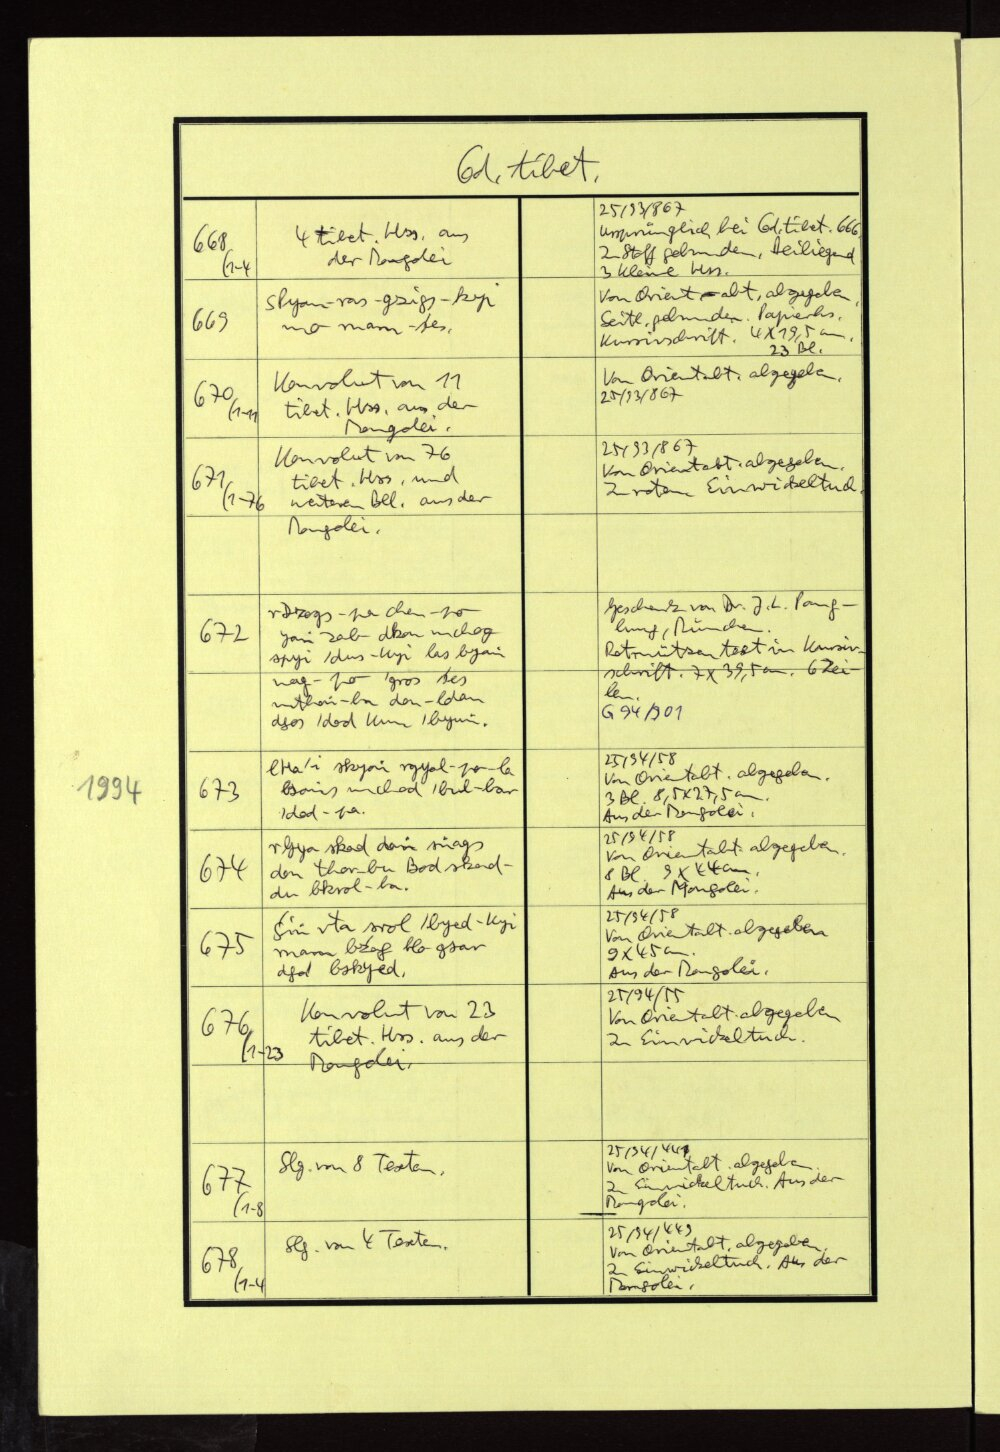 Cod. tibet.
668
(1-4
4 tibet. Hss. aus
der Mongolei
25/93/867
Ursprünglich bei Cod. tibet. 666,
In Stoff gebunden, Beiliegend
3 kleine Hss.
669
sPyan-ras-gzigs-kyi
mo
Von Orient-abt, abgegeben,
Seitl. gebunden. Papierhs.
Kursivschrift. 4 x 19,5 cm.
23 Bl.
670
(1-11
Konvolut von 11
tibet. Hss. aus der
Mongolei.
Von Orientabt. abgegeben.
25/93/867
671
(1-76
Konvolut von 76
tibet. Hss. und
weiteren Bll. aus der
Mongolei.
25/93/867
Von Orientabt. abgegeben.
In rotem Einwickeltuch.
672
rDzogs-pa chen-po
yań zab dkon mchog
spyi 'dus-kyi las byań
nag-po 'gros śes
mthoń-ba don-ldan
dgos 'dod kun 'byuń.
Geschenk von Dr. J. L. Pang-
lung, München.
text in Kursiv-
schrift. 7 x 39,5 cm. 6 Zei-
len.
G 94/901
1994
673
lHa'i skyoń rgyal-po-la
mchod 'bul-bar
'dod-pa.
25/94/58
Von Orientabt. abgegeben.
3 Bl. 8,5 x 27,5 cm.
Aus der Mongolei.
674
rGya skad dań sńags
don thor-bu Bod skad-
du bkrol-ba.
25/94/58
Von Orientabt. abgegeben.
8 Bl. 9 x 44 cm.
Aus der Mongolei.
675
Śiń rta srol 'byed-kyi
blo gsar
dga' bskyed.
25/94/58
Von Orientabt. abgegeben
9 x 45 cm.
Aus der Mongolei.
676
(1-23
Konvolut von 23
tibet. Hss. aus der
Mongolei.
25/94/55
Von Orientabt. abgegeben
In Einwickeltuch.
677
(1-8
Slg. von 8 Texten.
25/94/441
Von Orientabt. abgegeben
In Einwickeltuch. Aus der
Mongolei.
678
(1-4
Slg. von 4 Texten.
25/94/449
Von Orientabt. abgegeben.
In Einwickeltuch. Aus der
Mongolei.